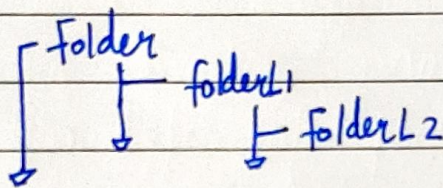 Folder
folderL1
FolderL2